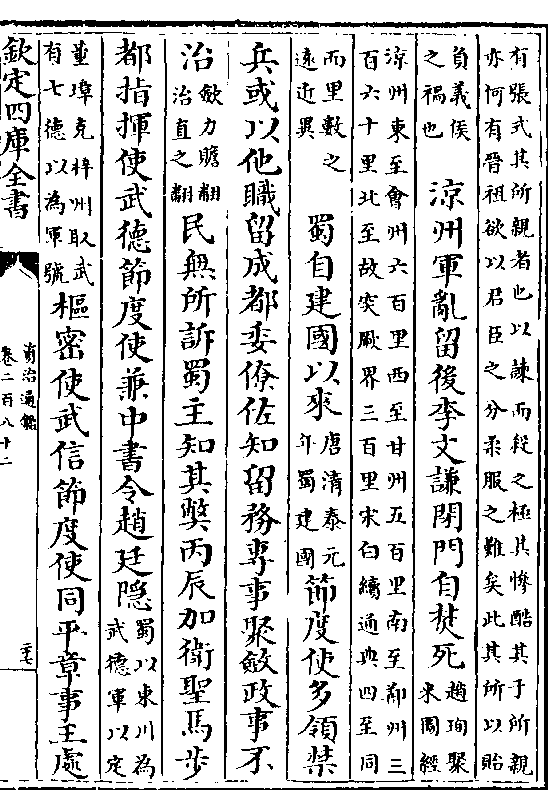 有張式其所親者也以諫而殺之極其慘酷其于所親
亦何有晉祖欲以君臣之分柔服之難矣此其所以貽
負義侯
之禍也
涼州軍亂留後李文謙閉門自焚死
趙珣聚
米圖經
涼州東至會州六百里西至甘州五百里南至鄯州三
百六十里北至故突厥界三百里宋白續通典四至同
而里數之
遠近異
蜀自建國以來
唐清泰元
年蜀建國
節度使多領禁
兵或以他職留成都委僚佐知留務專事聚斂政事不
治
斂力贍翻
治直之翻
民無所訴蜀主知其弊丙辰加衛聖馬步
都指揮使武德節度使兼中書令趙廷隱
蜀以東川為
武德軍以定
董璋克梓州取武
有七德以為軍號
樞密使武信節度使同平章事王處
欽定四庫全書
資治通鑑
卷二百八十二
二十七